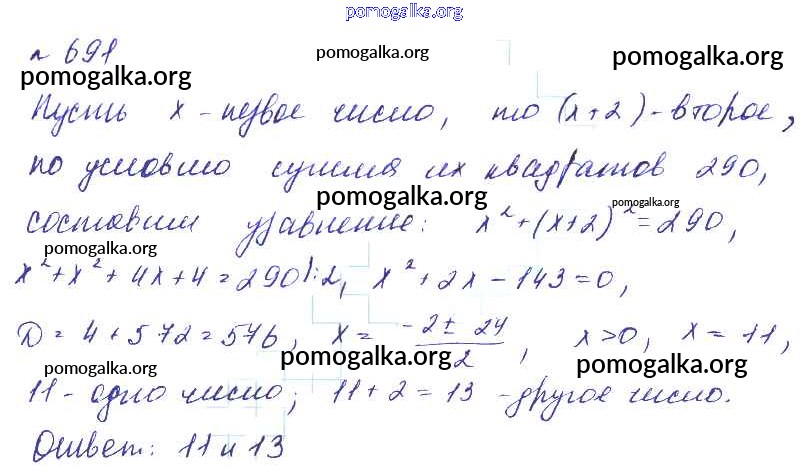 pomogalka.org
№ 691
pomogalka.org
pomogalka.org
pomogalka.org
Пусть x - первое число, то (x+2) - второе,
по условию сумма их квадратов 290,
pomogalka.org
pomogalka.org
составим уравнение: x²+(x+2)²=290,
pomogalka.org
pomogalka.org
x²+x²+4x+4=290 |:2, x²+2x-143=0,
D=4+572=576, x= (-2±24)/2, x>0, x=11,
pomogalka.org
pomogalka.org
pomogalka.org
11 - одно число; 11+2=13 - другое число.
Ответ: 11 и 13